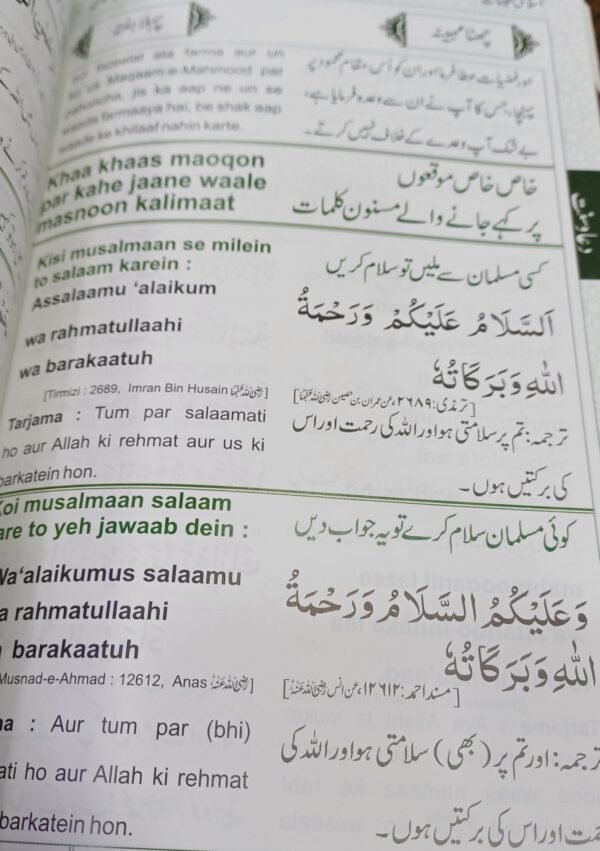 چھٹا مہینہ
پہلا ہفتہ
aur un
Maqaam-e-Mahmood par
jis ka aap ne un se
waada farmaaya hai, be shak aap
waade ke khilaaf nahin karte.
اور فضیلت عطا فرما اور ان کو اُس مقامِ محمود پر
پہنچا، جس کا آپ نے ان سے وعدہ فرمایا ہے،
بے شک آپ وعدے کے خلاف نہیں کرتے۔
Khaa khaas maoqon
par kahe jaane waale
masnoon kalimaat
خاص خاص موقعوں
پر کہے جانے والے مسنون کلمات
Kisi musalmaan se milein
to salaam karein :
کسی مسلمان سے ملیں تو سلام کریں
Assalaamu ‘alaikum
wa rahmatullaahi
wa barakaatuh
اَلسَّلَامُ عَلَيْكُمْ وَرَحْمَةُ
اللهِ وَبَرَكَاتُهٗ
[Tirmizi : 2689, Imran Bin Husain رضی اللہ عنہما]
[ترمذی: ۲۶۸۹، عن عمران بن حصین رضی اللہ عنہما]
Tarjama : Tum par salaamati
ho aur Allah ki rehmat aur us ki
barkatein hon.
ترجمہ: تم پر سلامتی ہو اور اللہ کی رحمت اور اس
کی برکتیں ہوں۔
Koi musalmaan salaam
are to yeh jawaab dein :
کوئی مسلمان سلام کرے تو یہ جواب دیں
Wa‘alaikumus salaamu
a rahmatullaahi
barakaatuh
وَعَلَيْكُمُ السَّلَامُ وَرَحْمَةُ
اللهِ وَبَرَكَاتُهٗ
Musnad-e-Ahmad : 12612, Anas رضی اللہ عنہ]
[مسند احمد: ۱۲۶۱۲، عن انس رضی اللہ عنہ]
ma : Aur tum par (bhi)
ati ho aur Allah ki rehmat
barkatein hon.
ترجمہ: اور تم پر (بھی) سلامتی ہو اور اللہ کی
رحمت اور اس کی برکتیں ہوں۔